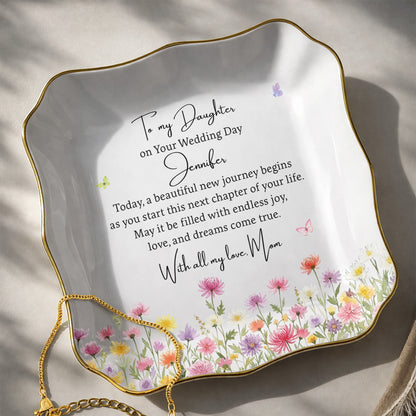 To my Daughter
on Your Wedding Day
Jennifer
Today, a beautiful new journey begins
as you start this next chapter of your life.
May it be filled with endless joy,
love, and dreams come true.
With all my love, Mom